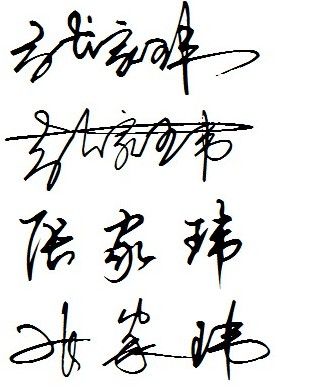 张家玮
张家玮
张家玮
张家玮